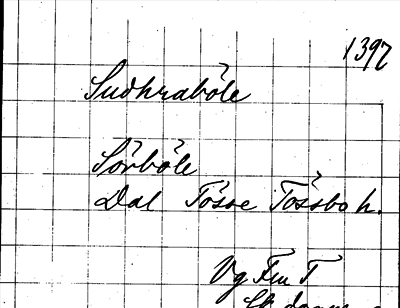 1397
Sudhraböle
Sörböle
Dal Tösse Tössbo h.
Vg Fru T